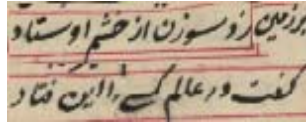 برزمین زد سوزن از خشم اوستاد
گفت در عالم کسے را این فتاد